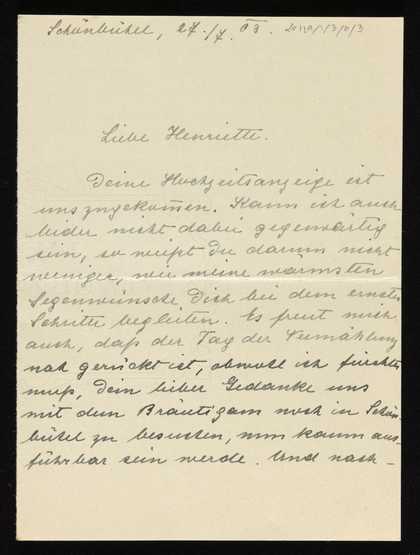 Schönbühel, 27./7. 03.
Liebe Henriette.
Deine Hochzeitsanzeige ist
uns zugekom̅en. Kann ich auch
leider nicht dabei gegenwärtig
sein, so weißt Du darum nicht
weniger, wie meine wärmsten
Segenwünsche Dich bei dem ernsten
Schritte begleiten. Es freut mich
auch, daß der Tag der Vermählung
nah gerückt ist, obwohl ich fürchten
muß, Dein lieber Gedanke uns
mit dem Bräutigam noch in Schön-
bühel zu besuchen, nun kaum aus-
führbar sein werde. Und nach-